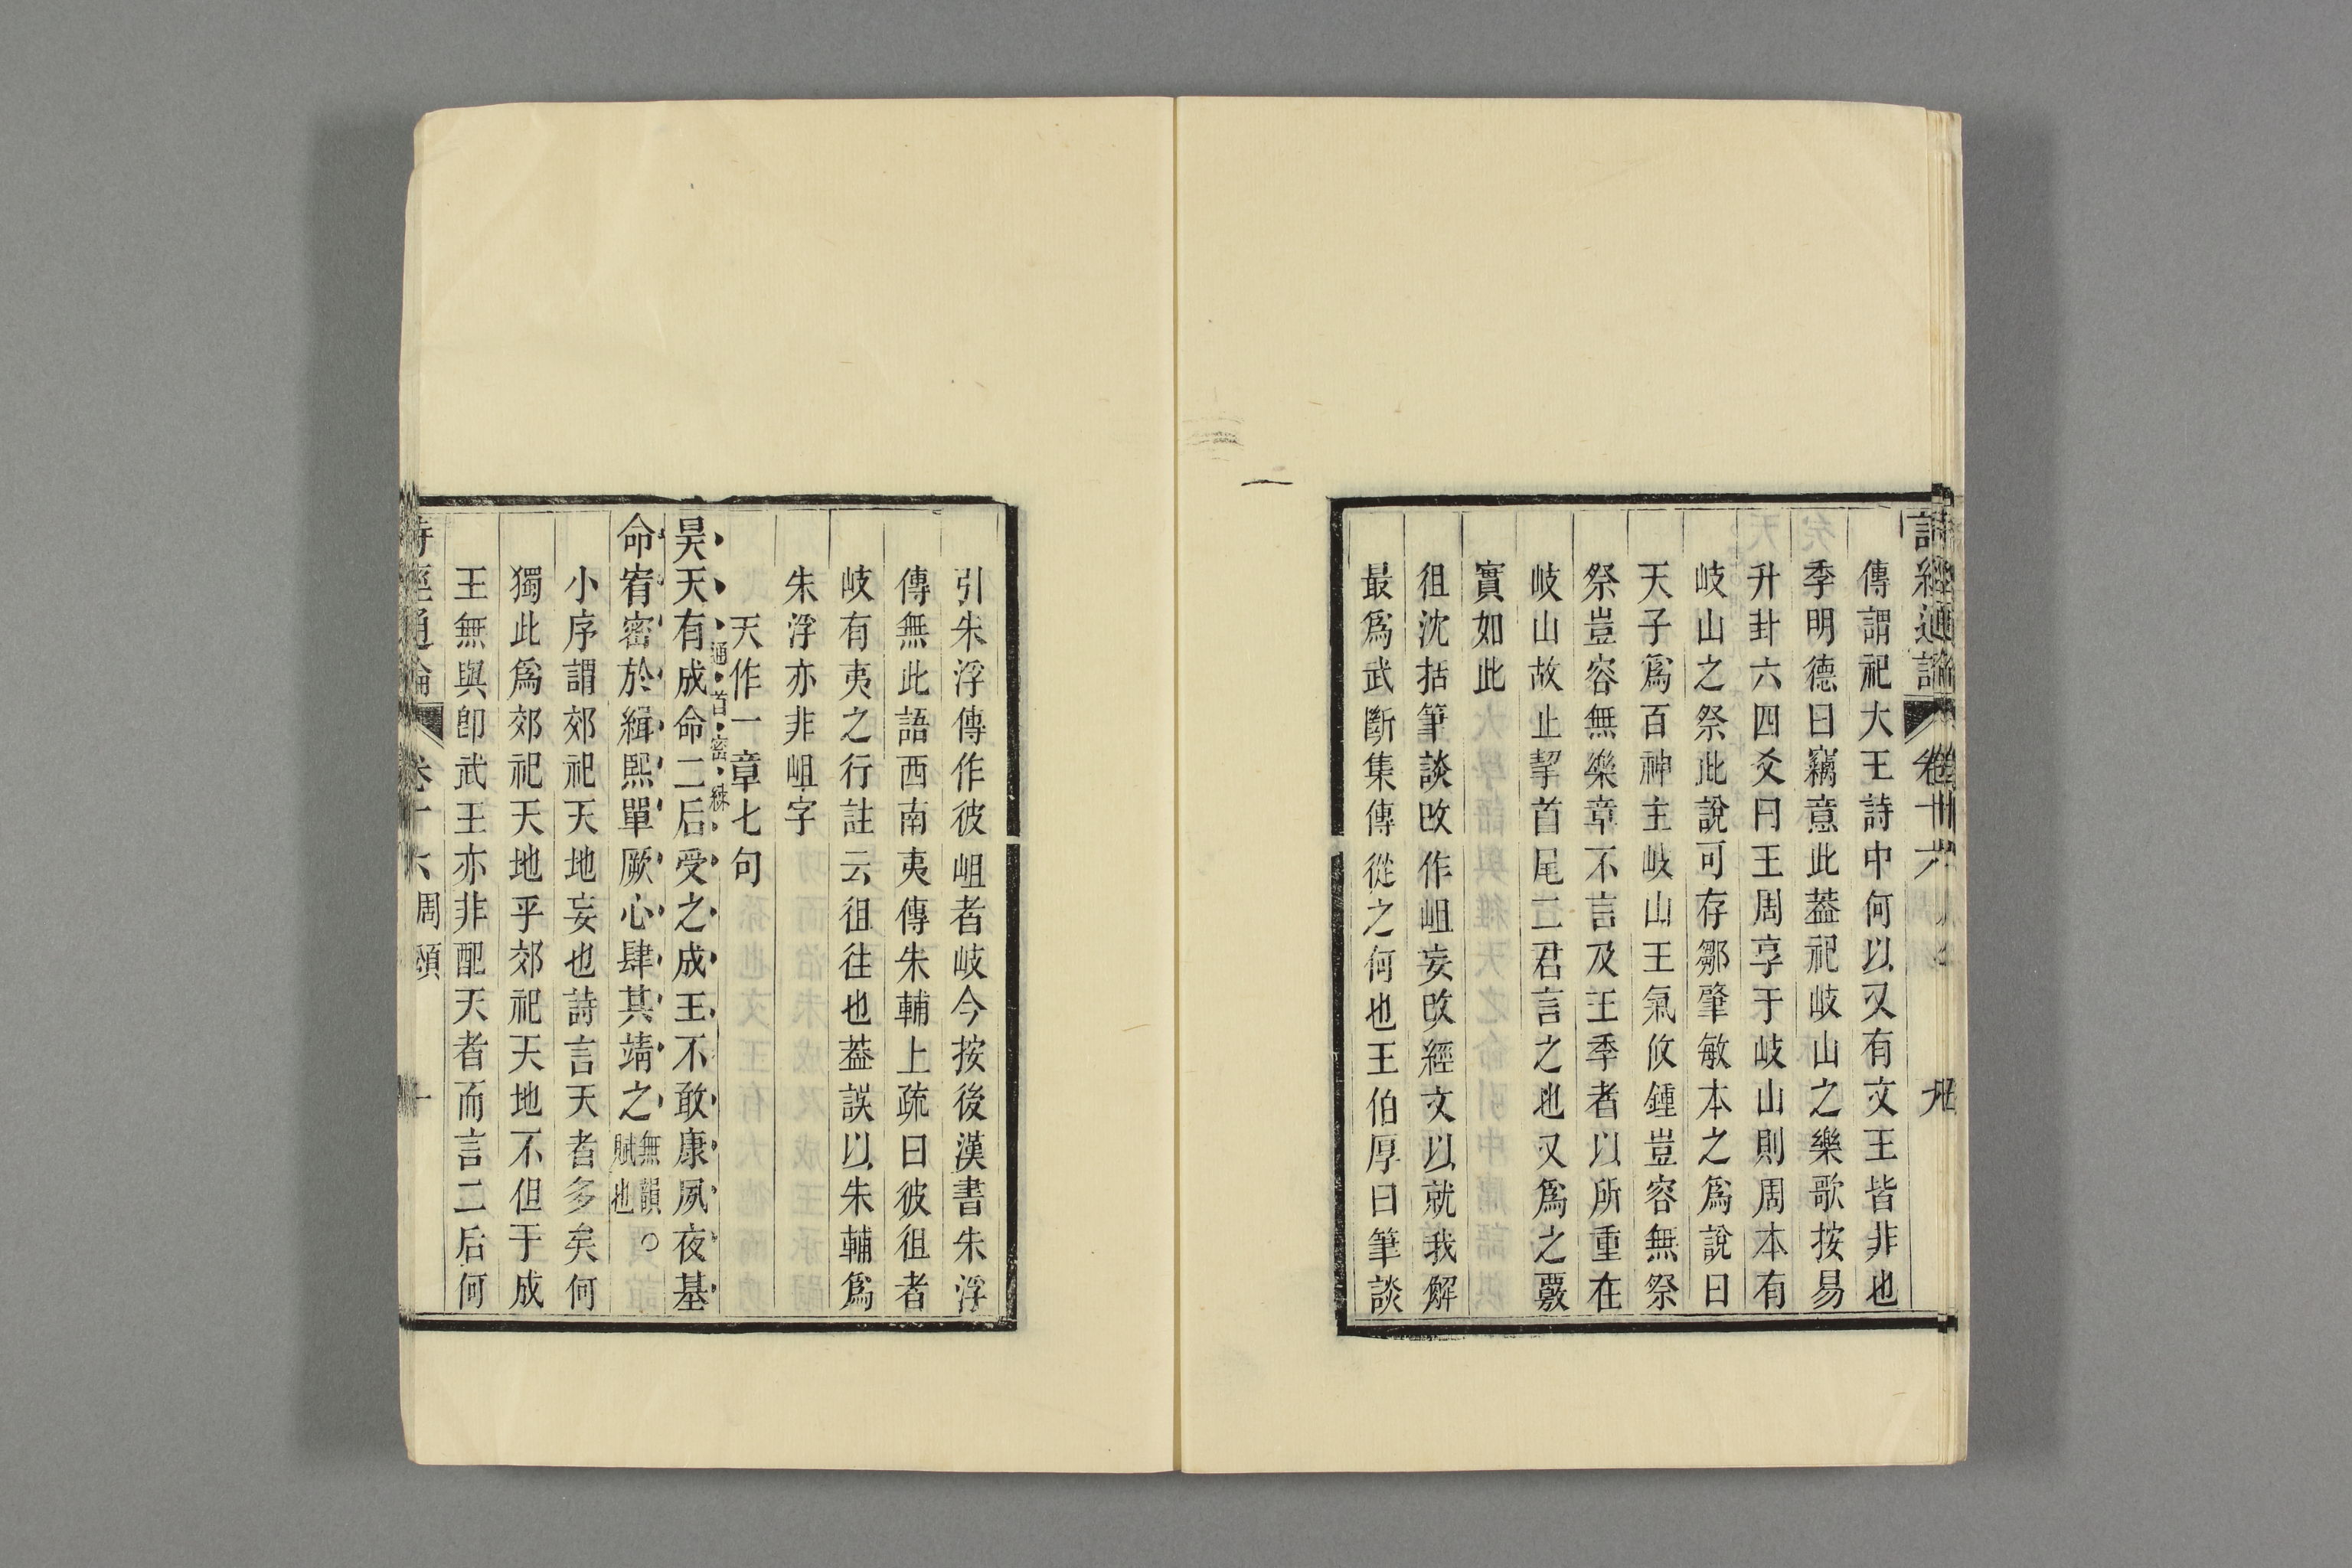 詩經通論 卷十六 九
傳謂祀大王詩中何以又有文王皆非也
季明德曰竊意此葢祀岐山之樂歌按易
升卦六四爻曰王周享于岐山則周本有
岐山之祭此說可存鄒肇敏本之爲說曰
天子爲百神主岐山王氣攸鍾豈容無祭
祭豈容無樂章不言及王季者以所重在
岐山故止挈首尾二君言之也又爲之覈
實如此
徂沈括筆談改作岨妄改經文以就我解
最爲武斷集傳從之何也王伯厚曰筆談
引朱浮傳作彼岨者岐今按後漢書朱浮
傳無此語西南夷傳朱輔上疏曰彼徂者
岐有夷之行註云徂往也葢誤以朱輔爲
朱浮亦非岨字
天作一章七句
昊天有成命二后受之成王不敢康夙夜基
通首密練
命宥密於緝熙單厥心肆其靖之無韻賦也○
小序謂郊祀天地妄也詩言天者多矣何
獨此爲郊祀天地乎郊祀天地不但于成
王無與卽武王亦非配天者而言二后何
詩經通論 卷十六 周頌 十